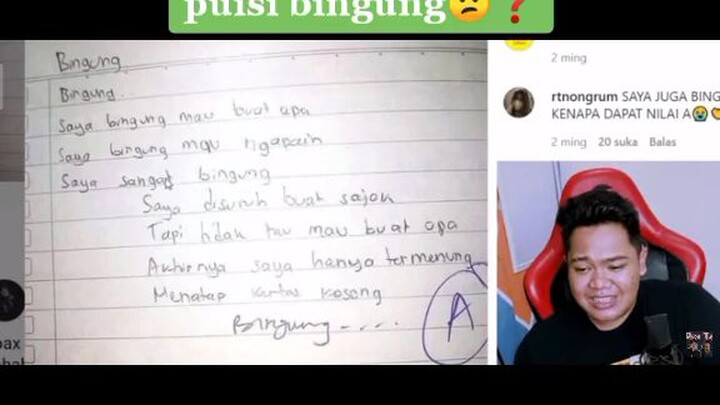 puisi bingung😕❓
Bingung
Bingung..
Saya bingung mau buat apa
Saya bingung mau ngapain
Saya sangat bingung
Saya disuruh buat sajak
Tapi tidak tau mau buat apa
Akhirnya saya hanya termenung
Menatap kertas kosong
Bingung.....
A
2 ming
rtnongrum SAYA JUGA BING
KENAPA DAPAT NILAI A😭
2 ming 20 suka Balas